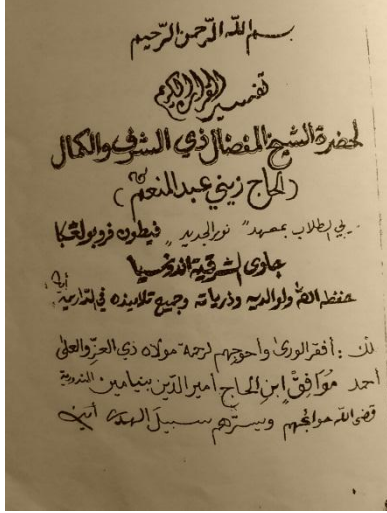 بسم الله الرحمن الرحيم
تفسير القرآن الكريم
لحضرة الشيخ المفضال ذي الشرف والكمال
(الحاج زيني عبد المنعم)
ربي الطلاب بمعهد "نور الجديد" فيطون فروبولڠكا
جاوى الشرقية اندونسيا
حفظه الله ولوالديه وذرياته وجميع تلاميذه في الدارين
لك : أفقر الورى وأحوجهم لرحمة مولاه ذي العز والعلى
أحمد مُوَافِقْ ابن الحاج أمير الدين بنيامين
قضى الله حوائجهم ويسّرهم سبيل الهدى آمين